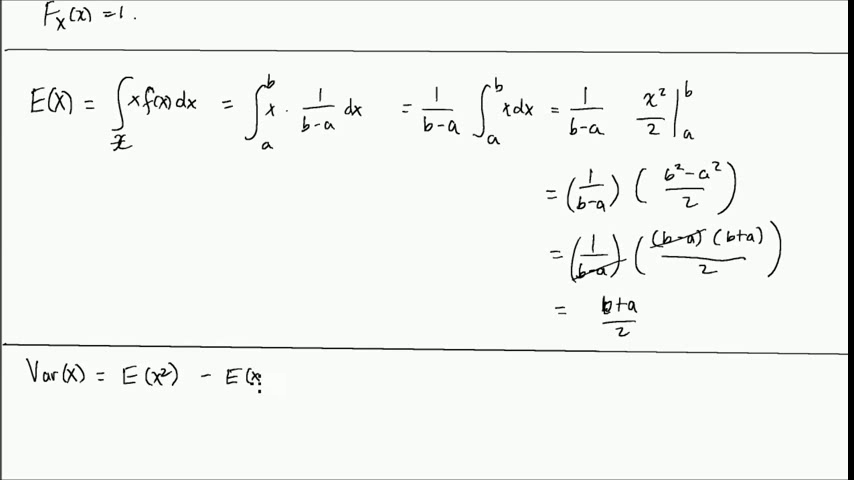 F_X(x) = 1.
E(X) = ∫_𝒳 x f(x) dx = ∫_a^b x · 1/(b-a) dx = 1/(b-a) ∫_a^b x dx = 1/(b-a) x²/2 |_a^b
= (1/(b-a)) ((b²-a²)/2)
= (1/(b-a)) ((b-a)(b+a)/2)
= (b+a)/2
Var(X) = E(x²) - E(x